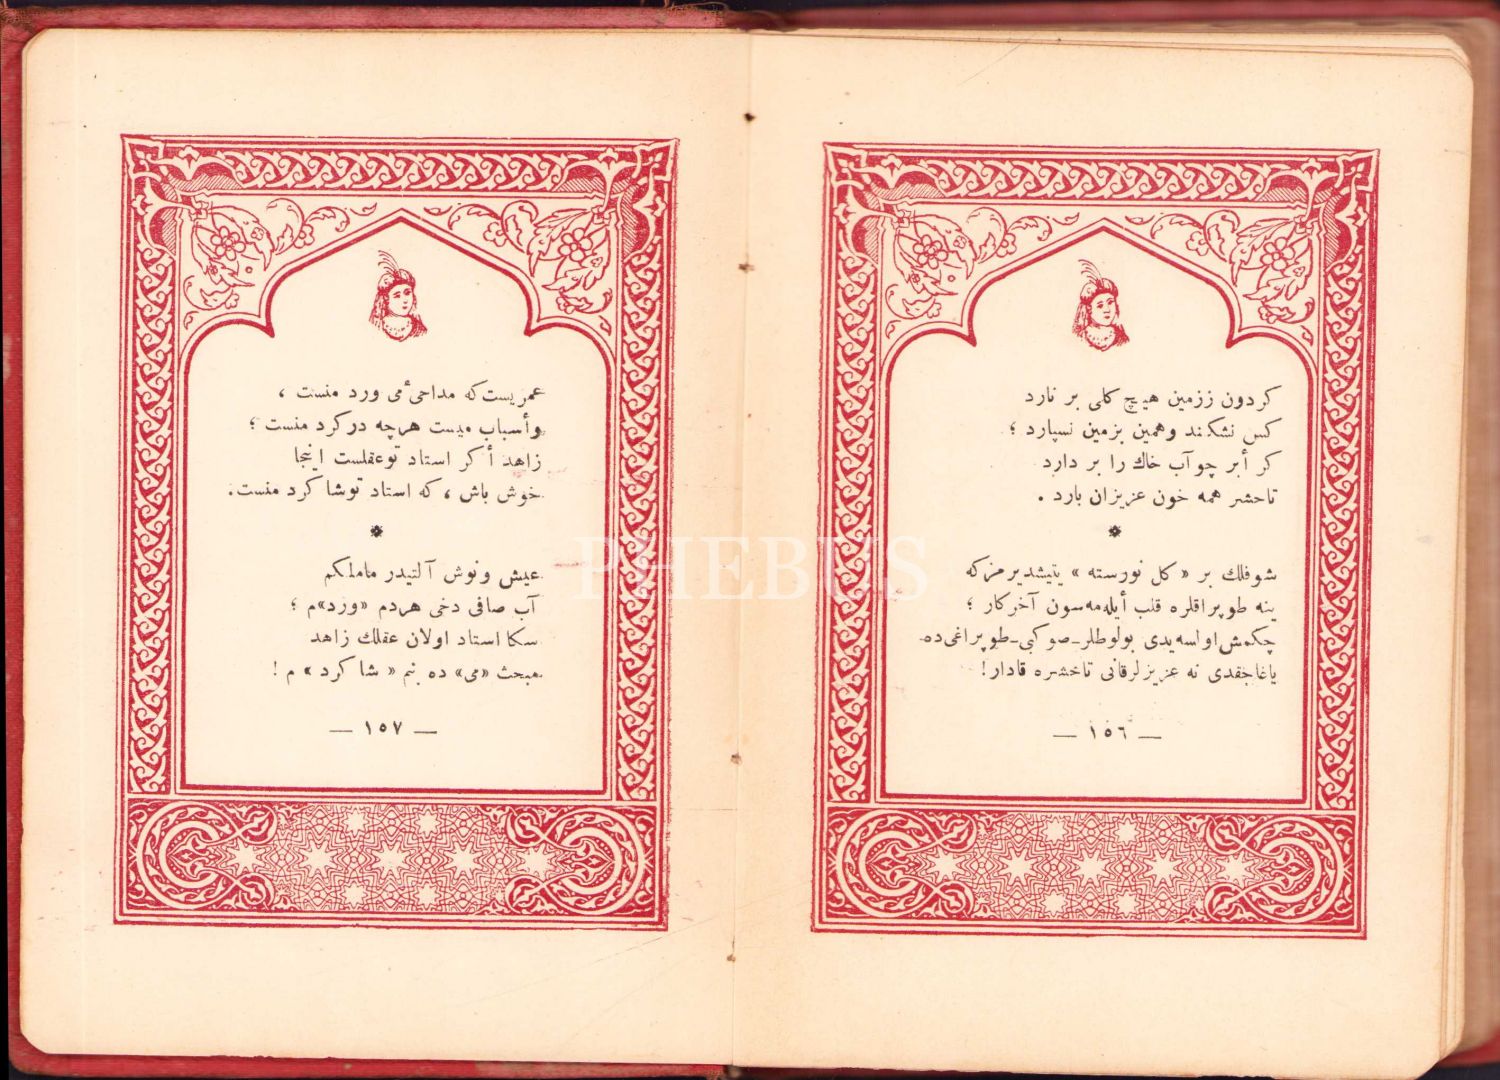 كردون ززمين هيچ كلى بر نارد
كس نشكند وهمين بزمين نسپارد ؛
كر أبر چو آب خاك را بر دارد
تاحشر همه خون عزيزان بارد .
شوفلك بر « كل نورسته » يتيشديرمزكه
ينه طوپراقلره قلب أيله‌مه‌سون آخركار ؛
چكمش اواسه‌يدى بولوطلر ـ صوكبى ـ طوپراغى‌ده
ياغاجقدى نه عزيزلرقانى تاحشره قادار !
— ١٥٦ —
عمريست كه مداحئ مى ورد منست ،
وأسباب ميست هرچه دركرد منست ؛
زاهد أكر استاد توعقلست اينجا
خوش باش ، كه استاد توشاكرد منست .
عيش ونوش آلتيدر مامملكم
آب صافى دخى هردم «ورد»م ؛
سكا استاد اولان عقلك زاهد
مبحث «مى» ده بنم « شاكرد » م !
— ١٥٧ —
PHEBUS